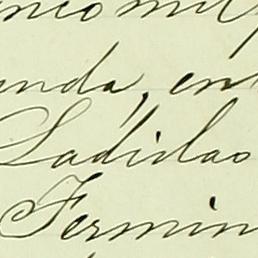 nda, en
Ladislao
Fermin